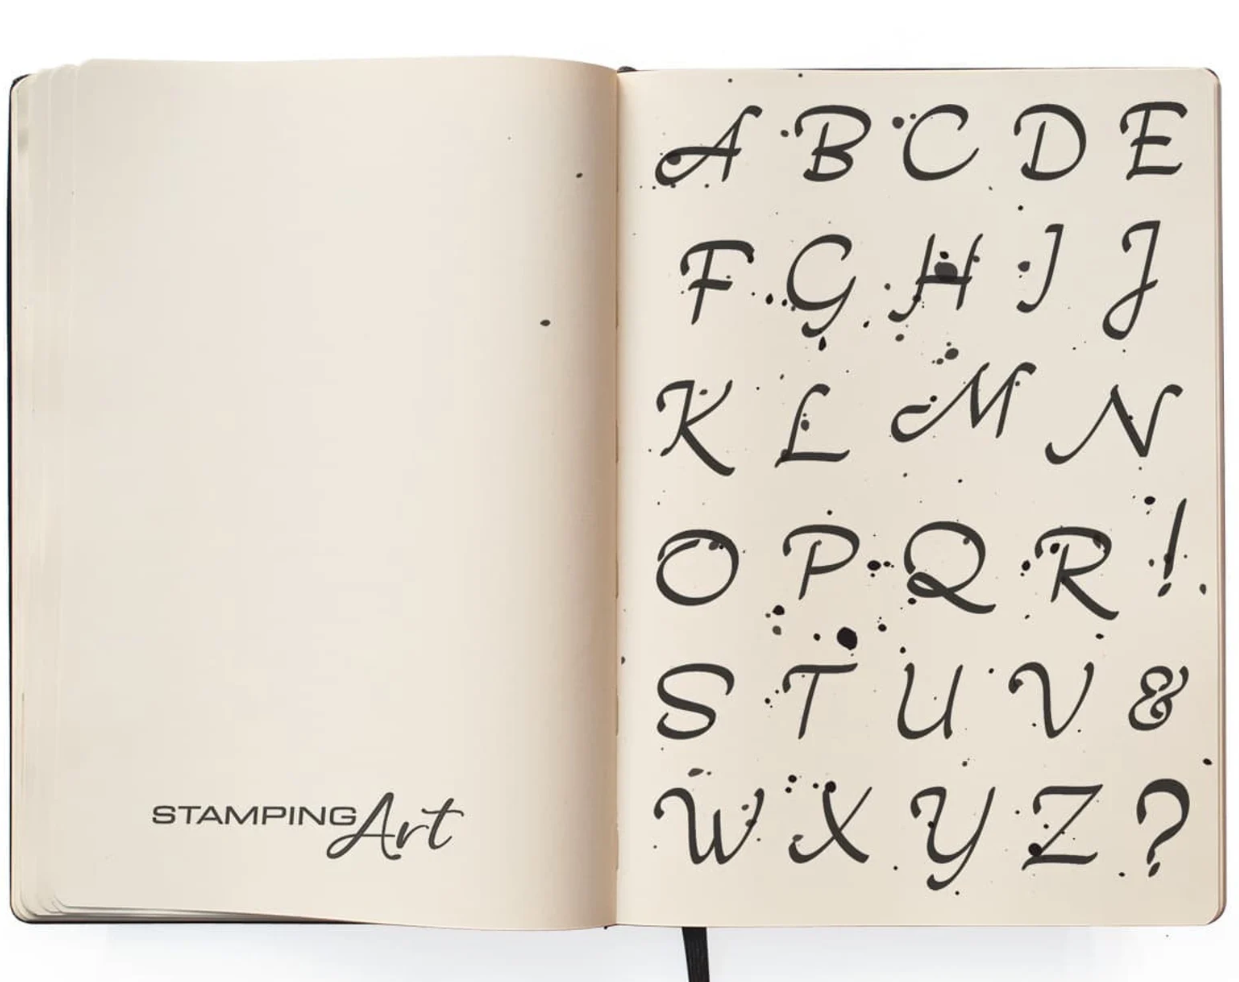 STAMPING Art
A B C D E
F G H I J
K L M N
O P Q R !
S T U V &
W X Y Z ?